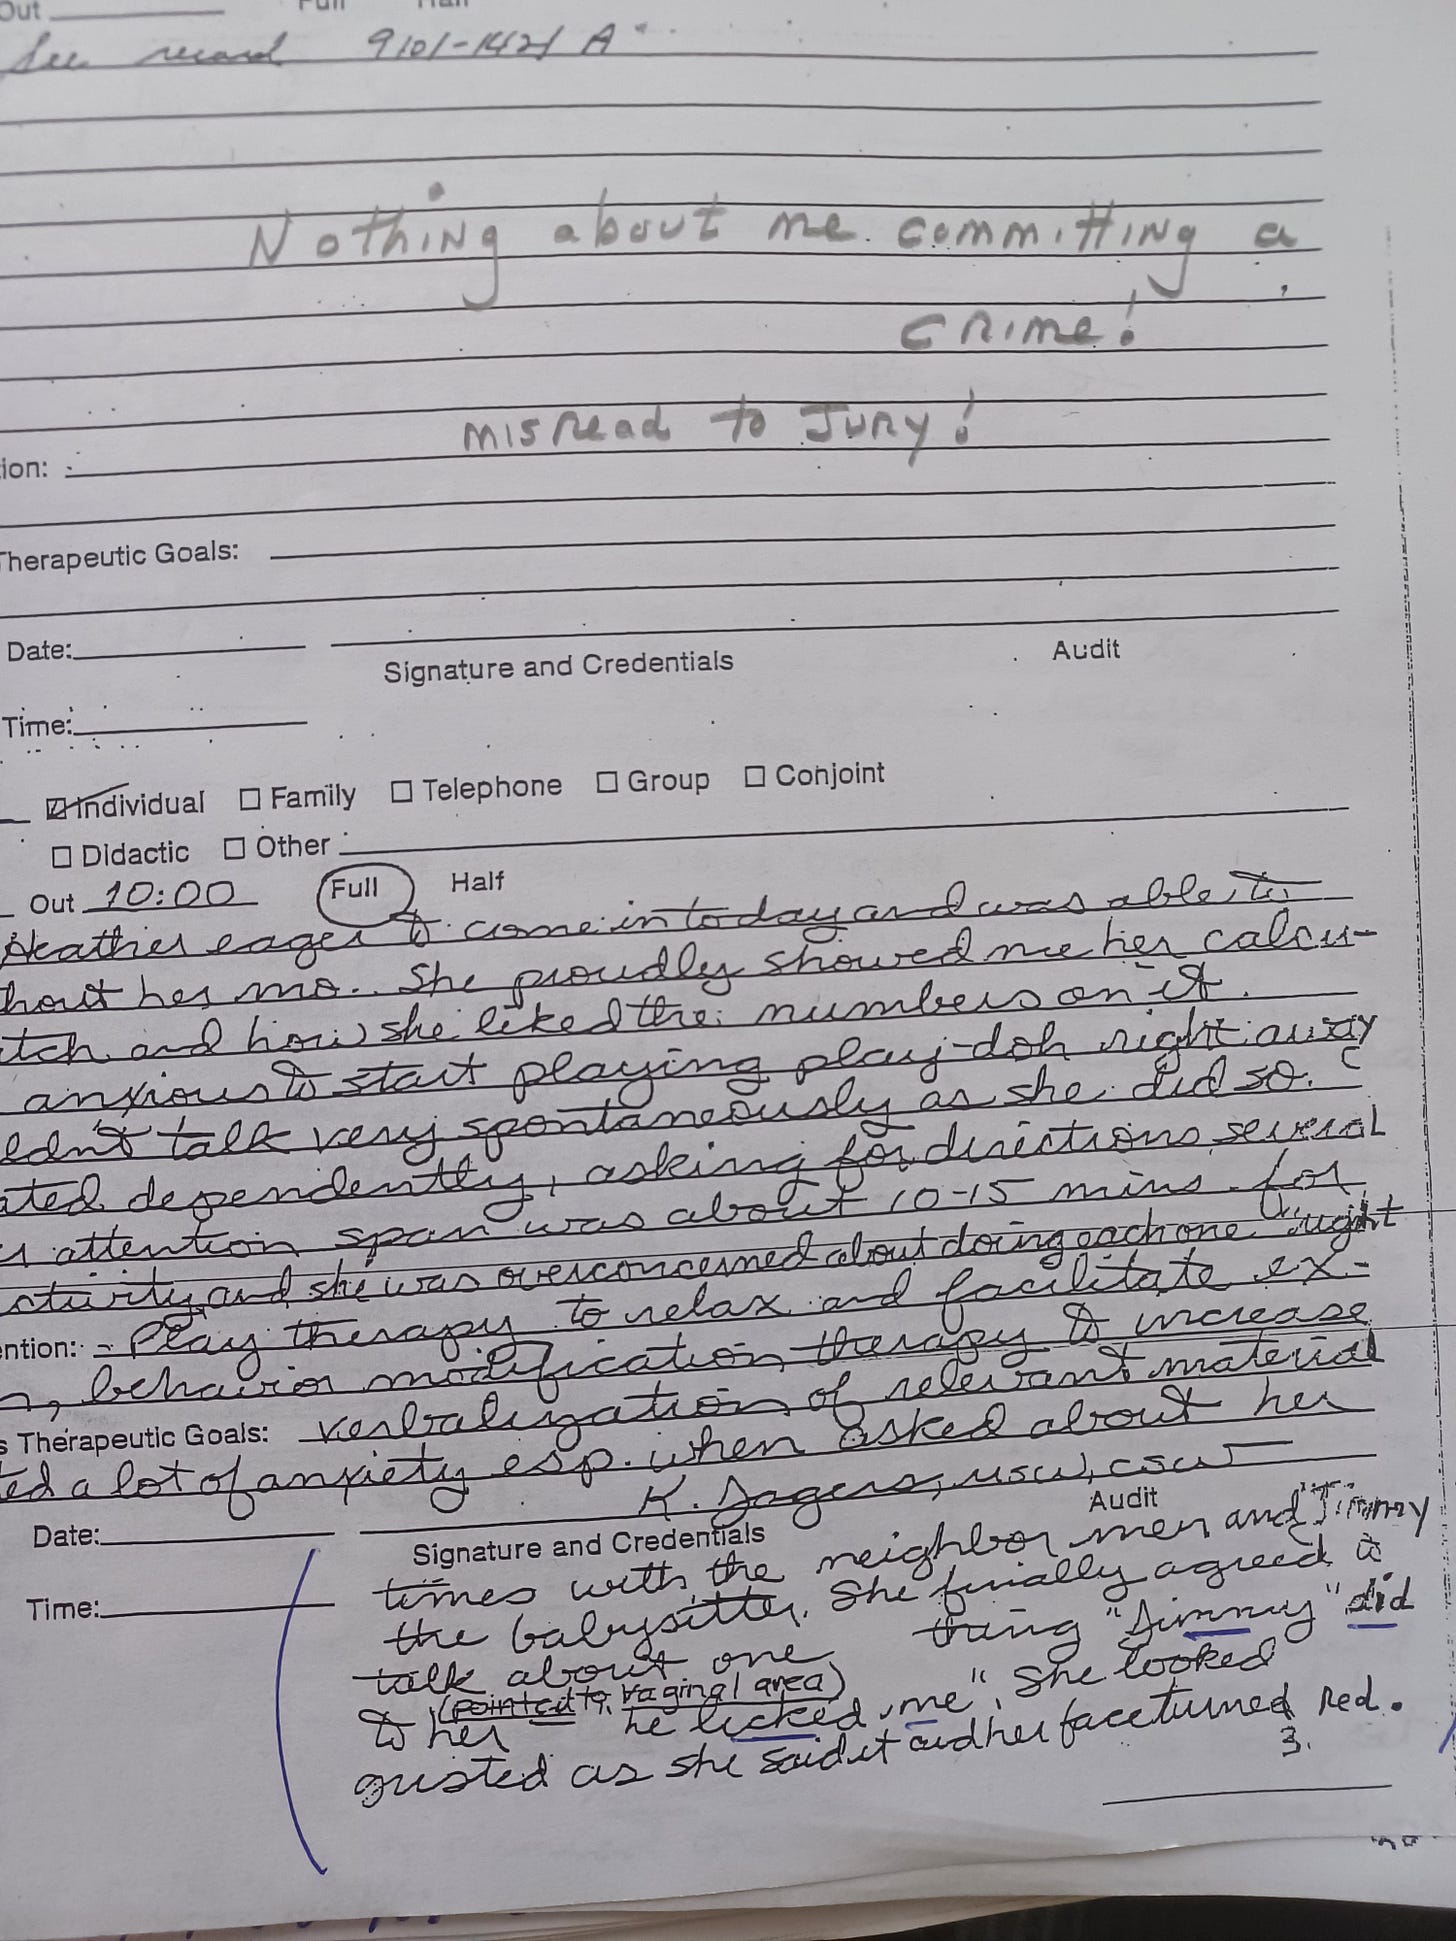 Out Full Half
See record 9101-1421 A
Nothing about me committing a
crime!
misread to Jury!
ion:
Therapeutic Goals:
Date:
Signature and Credentials Audit
Time:
Individual Family Telephone Group Conjoint
Didactic Other
Out 10:00 Full Half
Heather eager to come in today and was able to
hout her mo. She proudly showed me her calcu-
tch and how she liked the numbers on it.
anxious to start playing play-doh right away
ldn't talk very spontaneously as she did so.
ated dependently, asking for directions several
attention span was about 10-15 mins. for
ctivity and she was overconcerned about doing each one "right
ention: - Play therapy to relax and facilitate ex-
n, behavior modification therapy to increase
s Therapeutic Goals: verbalization of relevant material
ted a lot of anxiety esp. when asked about her
K. Sagers, MSW, CSW
Audit
Date:
Signature and Credentials
Time:
times with the neighbor men and "Jimmy
the babysitter. She finally agreed to
talk about one thing "Jimmy" did
(pointed to vaginal area)
to her he licked me". She looked
gusted as she said it and her face turned red.
3.